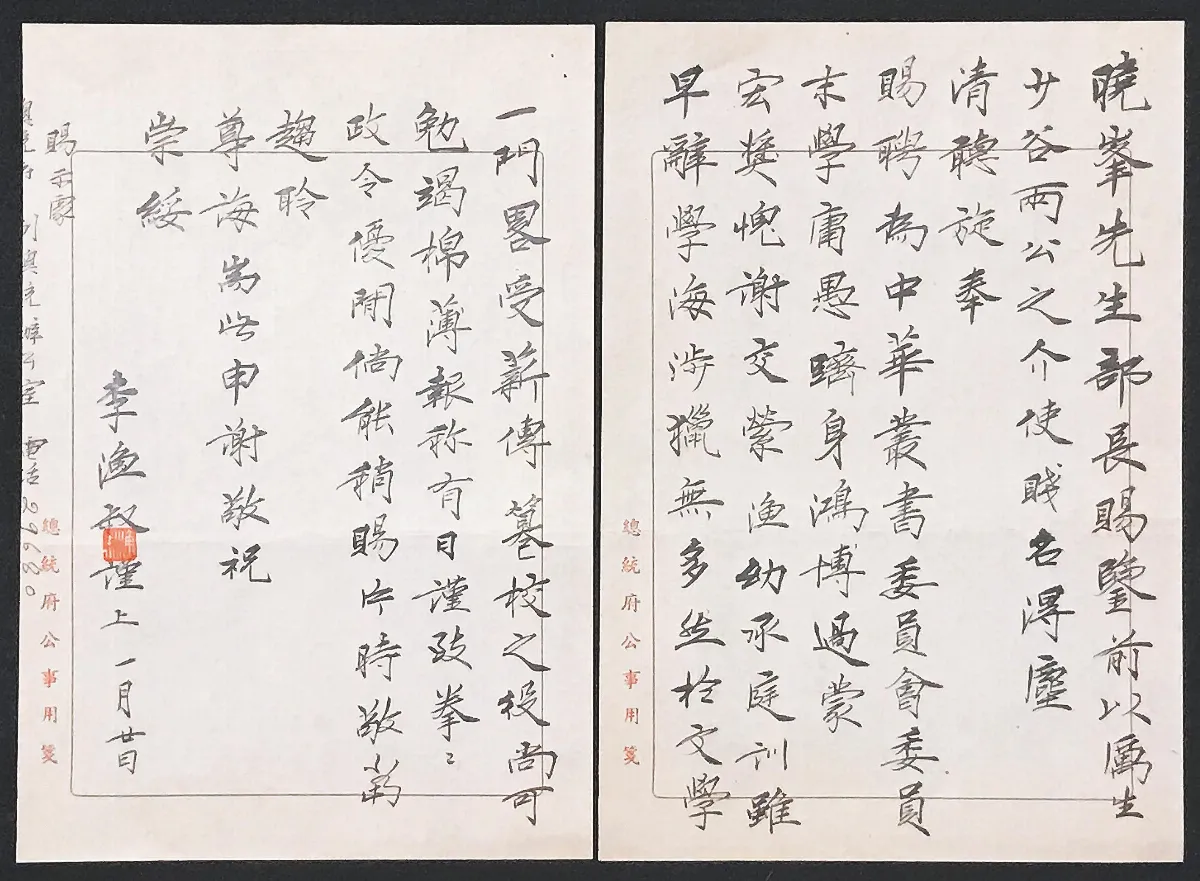 曉峯先生部長賜鑒前以厲生
少谷兩公之介使賤名得塵
清聽旋奉
賜聘為中華叢書委員會委員
末學庸愚躋身鴻博過蒙
宏獎愧謝交縈漁幼承庭訓雖
早辭學海涉獵無多然於文學
總統府公事用箋
一門畧受薪傳纂校之役尚可
勉竭棉薄報称有日謹致拳〻
政令優閒倘能稍賜片時敬當
趨聆
尊誨耑此申謝敬祝
崇綏
李漁叔謹上 一月廿日
賜示蒙
總統府公事用箋